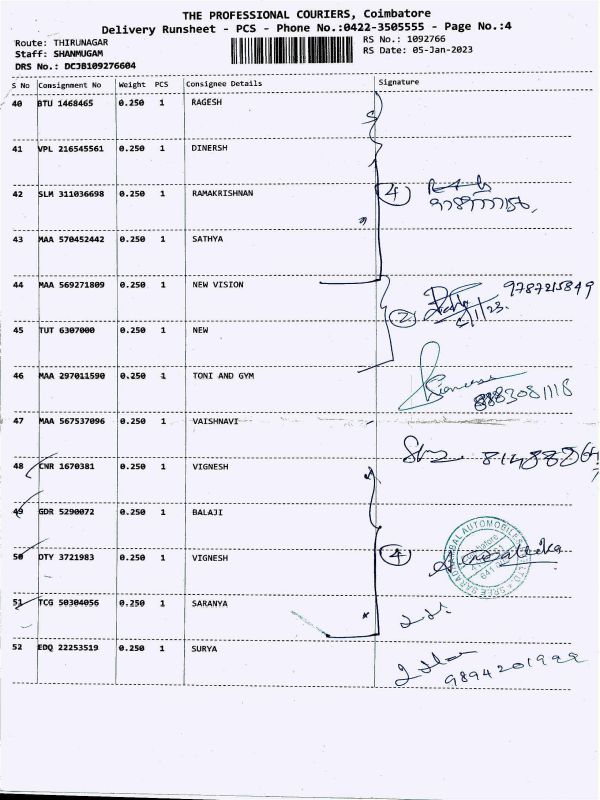 THE PROFESSIONAL COURIERS, Coimbatore
Delivery Runsheet - PCS - Phone No.:0422-3505555 - Page No.:4
Route: THIRUNAGAR
RS No.: 1092766
Staff: SHANMUGAM
RS Date: 05-Jan-2023
DRS No.: DCJB109276604
S No Consignment No Weight PCS Consignee Details Signature
40 BTU 1468465 0.250 1 RAGESH
41 VPL 216545561 0.250 1 DINERSH
42 SLM 311036698 0.250 1 RAMAKRISHNAN 4
43 MAA 570452442 0.250 1 SATHYA
44 MAA 569271809 0.250 1 NEW VISION 9787215849
2
45 TUT 6307000 0.250 1 NEW
46 MAA 297011590 0.250 1 TONI AND GYM
8883081118
47 MAA 567537096 0.250 1 VAISHNAVI
48 CNR 1670381 0.250 1 VIGNESH
49 GDR 5290072 0.250 1 BALAJI
50 DTY 3721983 0.250 1 VIGNESH 4
51 TCG 50304056 0.250 1 SARANYA
52 EDQ 22253519 0.250 1 SURYA
9894201929